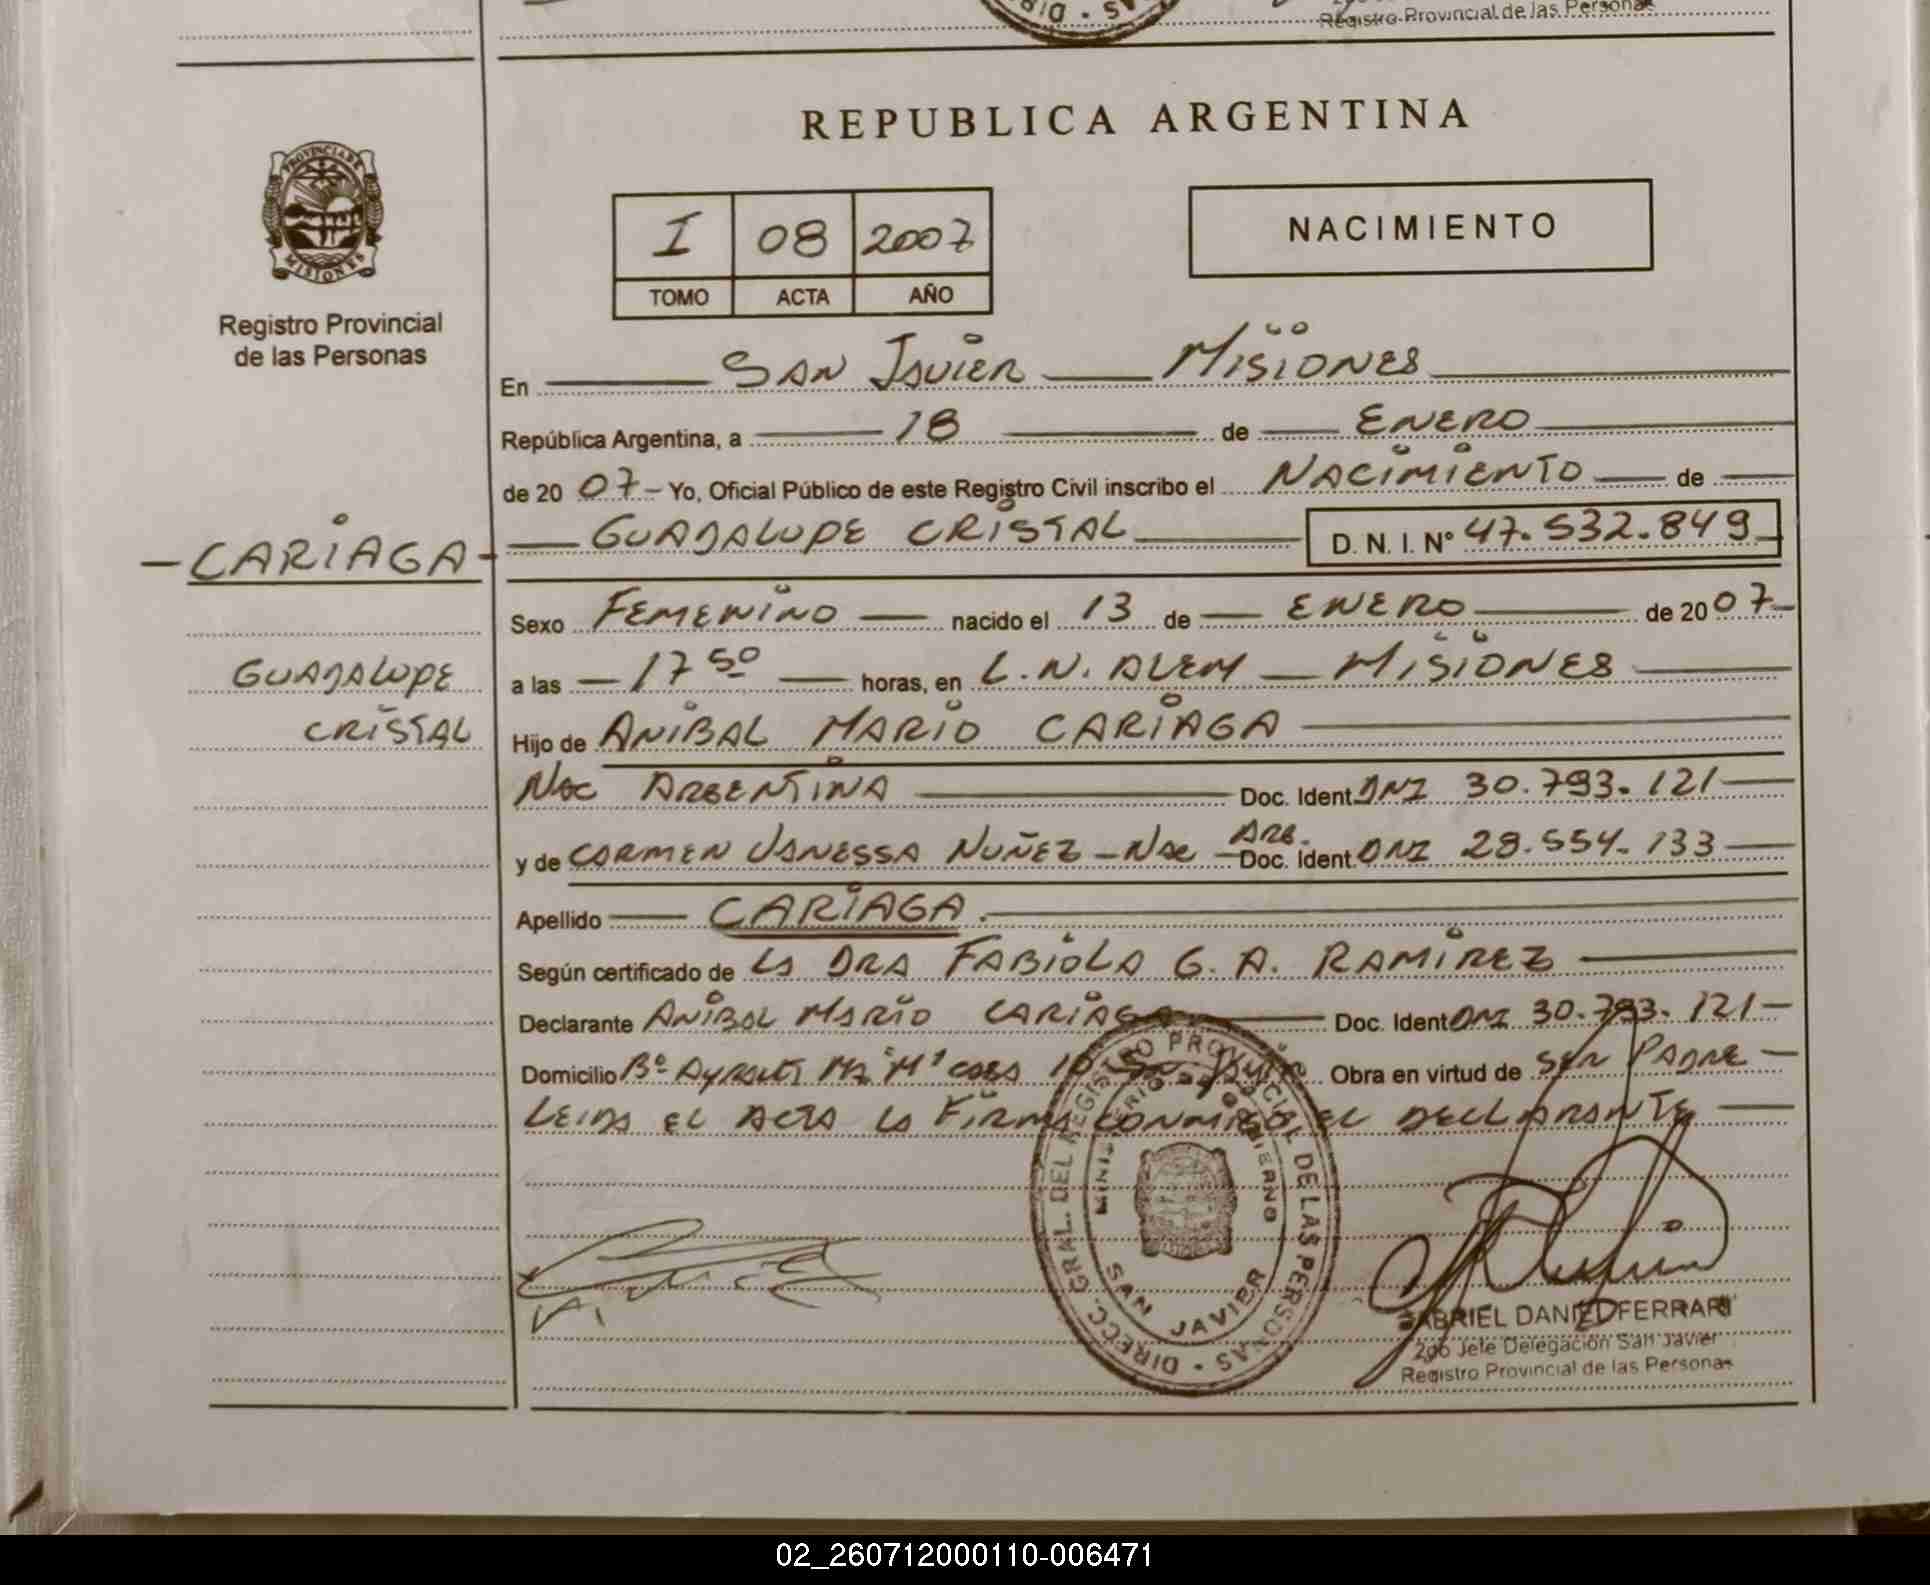 Registro Provincial de las Personas
REPUBLICA ARGENTINA
PROVINCIA DE
MISIONES
Registro Provincial
de las Personas
I 08 2007
TOMO ACTA AÑO
NACIMIENTO
En SAN JAVIER MISIONES
República Argentina, a 18 de ENERO
de 20 07 - Yo, Oficial Público de este Registro Civil inscribo el NACIMIENTO de
- CARIAGA -
GUADALUPE CRISTAL D. N. I. Nº 47.532.849
Sexo FEMENINO nacido el 13 de ENERO de 20 07
GUADALUPE
CRISTAL
a las 17 50 horas, en L.N. ALEM MISIONES
Hijo de ANIBAL MARIO CARIAGA
NAC ARGENTINA Doc. Ident. DNI 30.793.121
y de CARMEN VANESSA NUÑEZ - NAC ARG. Doc. Ident. DNI 28.554.133
Apellido CARIAGA.
Según certificado de LA DRA FABIOLA G. A. RAMIREZ
Declarante ANIBAL MARIO CARIAGA Doc. Ident DNI 30.793.121
Domicilio Bº Mz "M" CASA 10 Obra en virtud de SER PADRE
LEIDA EL ACTA LA FIRMA CONMIGO EL DECLARANTE
DIRECC. GRAL. DEL REGISTRO PROVINCIAL DE LAS PERSONAS
MINISTERIO DE GOBIERNO
SAN JAVIER
GABRIEL DANIEL FERRARI
2do Jefe Delegación San Javier
Registro Provincial de las Personas
02_260712000110-006471